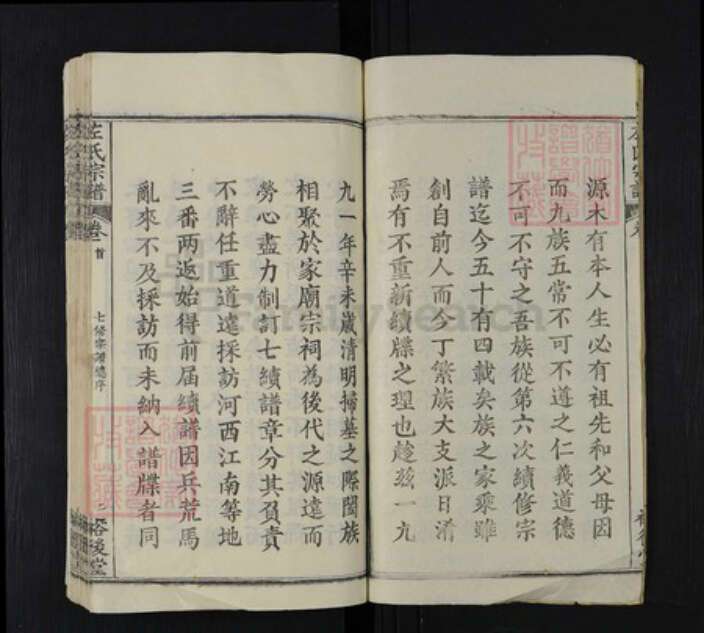 源木有本人生必有祖先和父母因
而九族五常不可不遵之仁義道德
不可不守之吾族從第六次續修宗
譜迄今五十有四載矣族之家乘雖
創自前人而今丁繁族大支派日渚
焉有不重新續牒之理也趁兹一九
九一年辛未歲清明掃墓之際闔族
相聚於家廟宗祠為後代之源遠而
勞心盡力制訂七續譜章分其負責
不辭任重道遠採訪河西江南等地
三番兩返始得前屆續譜因兵荒馬
亂來不及採訪而未納入譜牒者同
左氏宗譜
卷
首
七修宗譜總序
裕後堂
FamilySearch